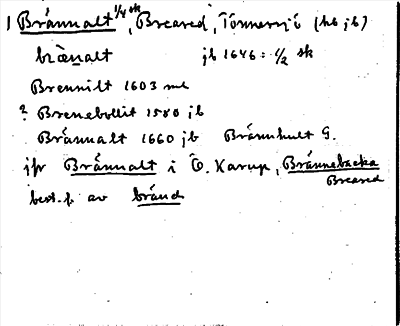 1 Brännalt 1/4 sk, Breared, Tönnersjö (hb jb)
brænalt jb 1646: 1/2 sk
Brennilt 1603 ml
? Brenebollit 1580 jb
Brännalt 1660 jb Brännhult G.
jfr Brännalt i Ö. Karup, Brännebacka
Breared
best. f. av bränd